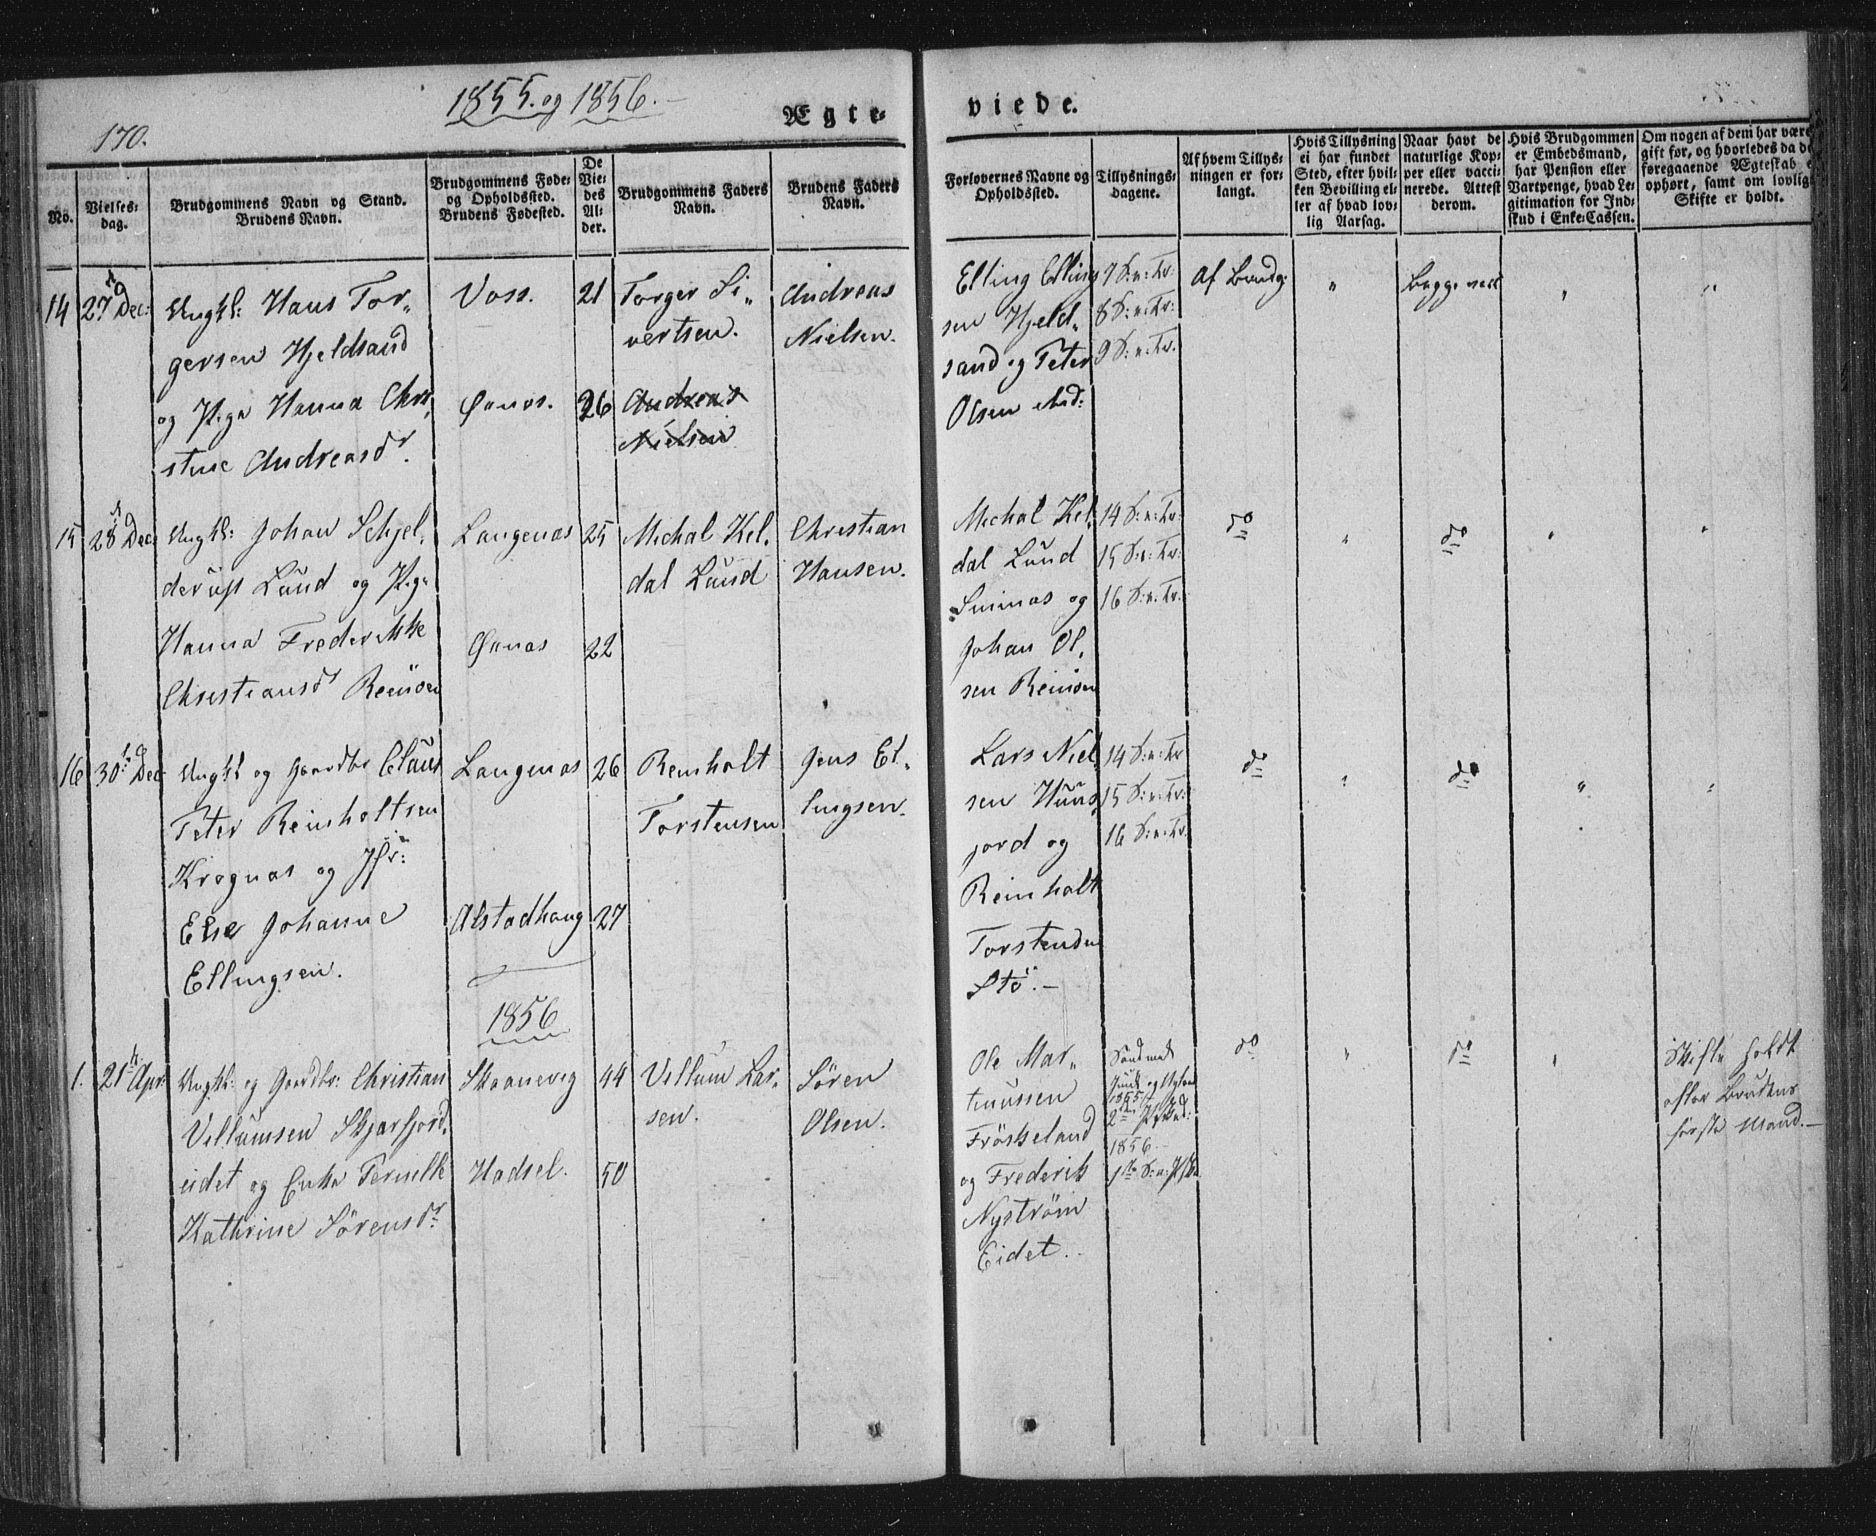 170.
1855. og 1856.
Ægte-
viede.
No.
Vielses-
dag.
Brudgommens Navn og Stand.
Brudens Navn.
Brudgommens Føde-
og Opholdssted.
Brudens Fødested.
De
Vie-
des
Al-
der.
Brudgommens Faders
Navn.
Brudens Faders
Navn.
Forlovernes Navne og
Opholdssted.
Tillysnings-
dagene.
Af hvem Tillys-
ningen er for-
langt.
Hvis Tillysning
ei har fundet
Sted, efter hvil-
ken Bevilling el-
ler af hvad lov-
lig Aarsag.
Naar havt de
naturlige Kop-
per eller vacci-
nerede. Attest
derom.
Hvis Brudgommen
er Embedsmand,
har Pension eller
Vartpenge, hvad Le-
gitimation for Ind-
skud i Enke-Cassen.
Om nogen af dem har være
gift før, og hvorledes da de
foregaaende Ægteskab e
ophørt, samt om lovlig
Skifte er holdt.
14
27 Dec:
Ungkl: Hans Tor„
gersen Hjeldsand
og P.ge Hanna Chri
stine Andreasdr.
Voss.
Øenæs.
21
26
Torger Si„
vertsen.
Andreas
Nielsen
Andreas
Nielsen.
Elling Elling
sen Hjeld„
sand og Peter
Olsen And:
7 S: n: Tr:
8 S: n: Tr:
9 S: n: Tr.
Af Brudg:
"
Begge vacc
"
"
15
28 Dec
Ungkl: Johan Schjel„
derup Lund og P.ge
Hanna Frederikke
Christiansdr Reinöen
Langenæs
Øenæs
25
22
Michal Kel„
dal Lund
Christian
Hansen.
Michal Kel„
dal Lund
Sminæs og
Johan Ol„
sen Reinöen
14 S: n: Tr:
15 S: n: Tr:
16 S: n: Tr:
do
"
do
"
"
16
30 Dec
Ungkl og Gaardbr Claus
Peter Reinholtsen
Krognæs og Jfr:
Else Johanne
Ellingsen.
Langenæs
Alstadhaug
26
27
Reinholt
Torstensen
Jens El„
lingsen.
Lars Niel
sen Huns
jord og
Reinholt
Torstensen
Stö.-
14 S: n: Tr
15 S: n: Tr:
16 S: n: Tr.
do
"
do
"
"
1856
1.
21 Apr:
Ungkl: og Gaardbr: Christian
Villumsen Skjærfjord„
eidet og Enke Pernille
Kathrine Sörensdr
Skaanevig
Hadsel.
44
50
Villum Lar„
sen.
Sören
Olsen.
Ole Mar„
tinussen
Fröskeland
og Frederik
Nyström
Eidet.
1855
1856
do
"
do
"
Skifte holdt
efter Brudens
første Mand.-